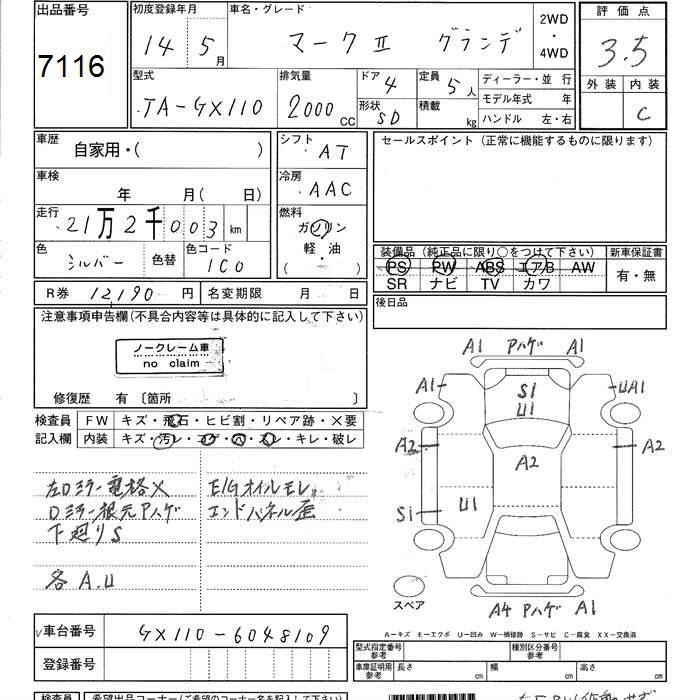 出品番号 初度登録年月 車名・グレード 2WD・4WD 評価点
7116 14年5月 マークⅡ グランデ 3.5
外装 内装 C
型式 排気量 ドア 4 定員 5人 ディーラー・並行
TA-GX110 2000cc 形状 SD 積載 kg モデル年式 年
ハンドル 左・右
車歴 自家用・( ) シフト AT セールスポイント(正常に機能するものに限ります)
車検 年 月( 日) 冷房 AAC
走行 21万2千003km 燃料 ガソリン
軽・油
( )
色 シルバー 色替 色コード 1C0
装備品(純正品に限り○をつけて下さい) 新車保証書
PS PW ABS エアB AW 有・無
SR ナビ TV カワ
R券 12190円 名変期限 月 日 後日品
注意事項申告欄(不具合内容等は具体的に記入して下さい)
ノークレーム車
no claim
修復歴 有〔箇所 〕
検査員 FW キズ・飛石・ヒビ割・リペア跡・X要
記入欄 内装 キズ・汚レ・コゲ・穴・スレ・キレ・破レ
左Dミラー電格X E/Gオイルモレ
Dミラー根元Pハゲ エンドパネル歪
下廻りS
各A.U
A1 Pハゲ A1
A1 S1 U1 UA1
A2 A2 A2
S1 U1
A4 Pハゲ A1
スペア
A-キズ E-エクボ U-凹み W-補修跡 S-サビ C-腐食 XX-交換済
車台番号 GX110-6048109
登録番号
型式指定番号 参考 種別区分番号 参考
車庫証明用 参考 長さ cm 幅 cm 高さ cm
検査員 希望出品コーナー(ご希望のコーナー名を